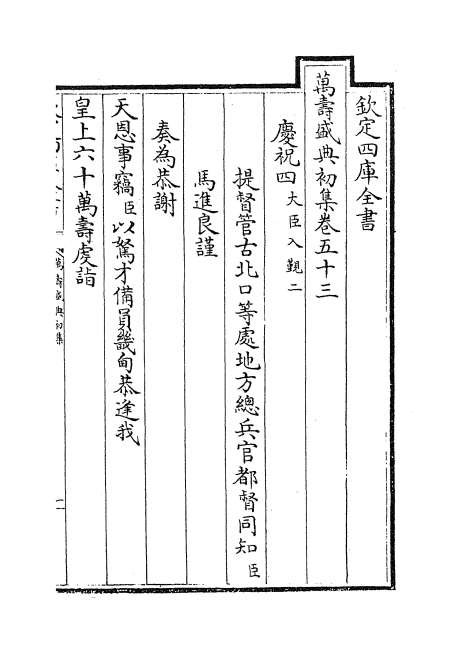 欽定四庫全書
萬壽盛典初集卷五十三
慶祝四大臣入覲二
提督管古北口等處地方總兵官都督同知臣
馬進良謹
奏為恭謝
天恩事竊臣以駑才備員畿甸恭逢我
皇上六十萬壽虔詣
萬壽盛典初集
一